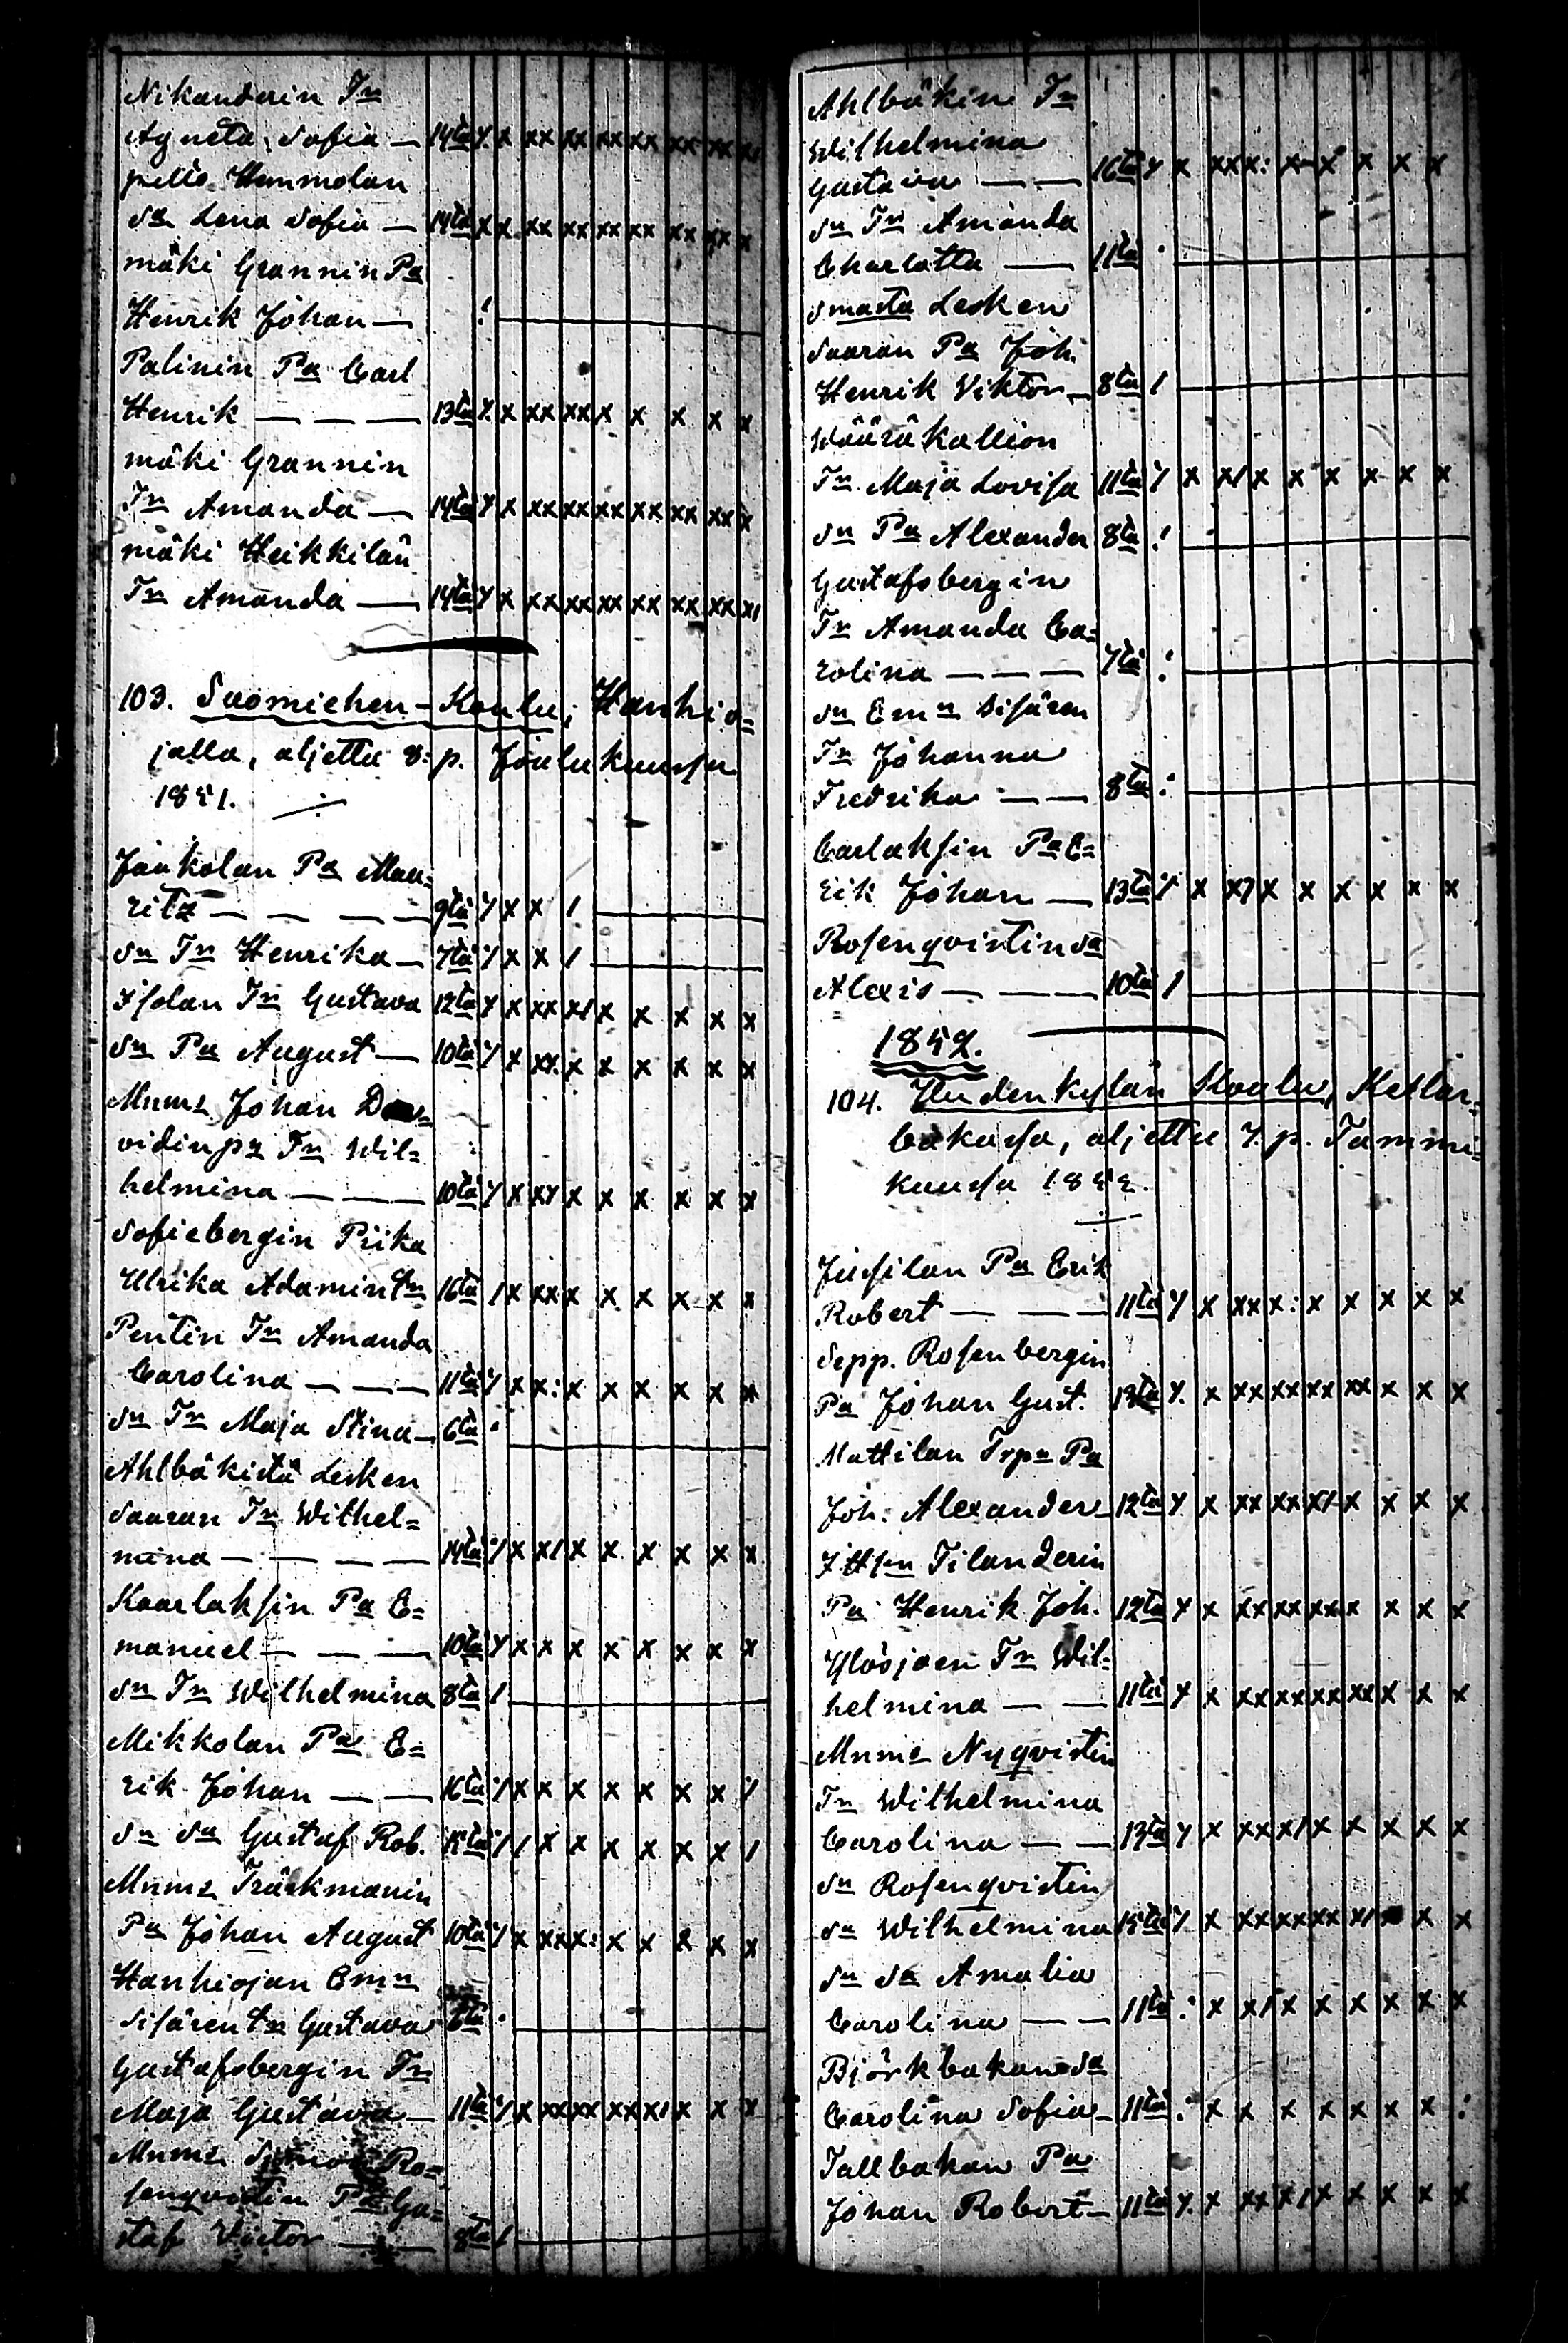 Nikanderin Tr
Agneta Sofia — 14ta % x xx xx xx xx xx xx x
pelto Hemmolan
Sa Lena Sofia — 14ta x x xx xx xx xx xx xx x
mäki Grannin Pa
Henrik Johan — !
Palinin Pa Carl
Henrik — — — 13ta % x xx xx x x x x x
mäki Grannin
Tr Amanda — 14ta % x xx xx xx xx xx xx x
mäki Heikkilän
Tr Amanda — 14ta % x xx xx xx xx xx xx x/
103. Suomiehen-Koulu, Hanhio=
jalla, aljettu 8: p. Joulukuussa
1851. ÷
Jaakolan Pa Mau=
ritz — — — — 9ta % x x /
Sn Tr Henrika — 7ta % x x /
Isolan Tr Gustava 12ta % x xx x/ x x x x x
Sn Pa August — 10ta % x xx. x x x x x x
Mnms Johan Da=
vidin pn Tr Wil=
helmina — — — 10ta % x xx x x x x x x
Sofiebergin Piika
Ulrika Adamin tr 16ta / x xx x x x x x x
Pentin Tr Amanda
Carolina — — — 11ta % x x: x x x x x x
Sn Tr Maja Stina — 6ta :
Ahlbäkistä Lesken
Saaran Tr Wilhel=
mina — — — — 14ta % x x/ x x x x x x
Kaarlaksin Pa E=
manuel — — — 10ta % x x x x x x x x
Sn Tr Wilhelmina 8ta /
Mikkolan Pa E=
rik Johan — — 16ta % x x x x x x x %
Sn Sa Gustaf Rob. 15ta % / x x x x x x /
Mnms Träskmanin
Pa Johan August 10ta % x xx x: x x x x x
Hanhiojan Emn
Sisären tr Gustava 6ta :
Gustafsbergin Tr
Maja Gustava — 11ta % x xx xx xx x/ x x x
Mnms Ro=
senqvistin Pa Gu=
staf Victor — 8ta /
Ahlbäkin Tr
Wilhelmina
Gustava — — 16ta % x xx x: x x x x x
Sn Tr Amanda
Charlotta — 11ta :
Smasta Lesken
Saaran Pa Joh.
Henrik Viktor — 8ta /
Wääräkallion
Tr Maja Lovisa 11ta % x x/ x x x x x x
Sn Pa Alexander 8ta !
Gustafsbergin
Tr Amanda Ca=
rolina — — — 7ta :
Sn Emn Sisären
Tr Johanna
Fredrika — — 8ta :
Carlaksin Pa E=
rik Johan — 13ta % x x/ x x x x x x
Rosenqvistin Sa
Alexis — — — 10ta /
1852.
104. Uudenkylän Koulu, Kellar=
bakassa, aljettu 7. p. Tammi=
kuussa 1852.
÷
Jussilan Pa Erik
Robert — — — 11ta % x xx x: x x x x x
Sepp. Rosenbergin
Pa Johan Gust. 13ta % x xx xx xx xx x x x
Mattilan Trpn Pa
Joh: Alexander — 12ta % x xx xx x/ x x x x
Tilanderin
Pa Henrik Joh. 12ta % x xx xx xx x x x x
Ylöojaen Tr Wil=
helmina — — 11ta % x xx xx xx xx x x x
Mnms Nyqvistin
Tr Wilhelmina
Carolina — — 13ta % x xx x/ x x x x x
Sn Rosenqvistin
Sa Wilhelmina 15ta % x xx xx xx x/ x x x
Sn Sa Amalia
Carolina — — 11ta : x x/ x x x x x x
Björkbakan Sa
Carolina Sofia — 11ta : x x x x x x x :
Tallbakan Pa
Johan Robert — 11ta % x xx x/ x x x x x